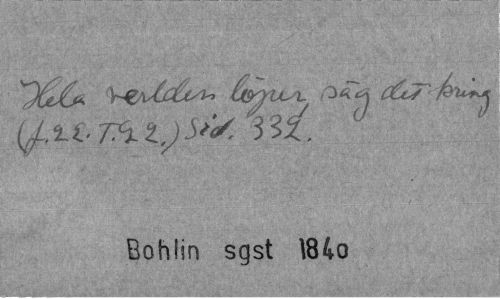 Hela verlden löper, säg det kring
Sid. 332.
Bohlin sgst 1840